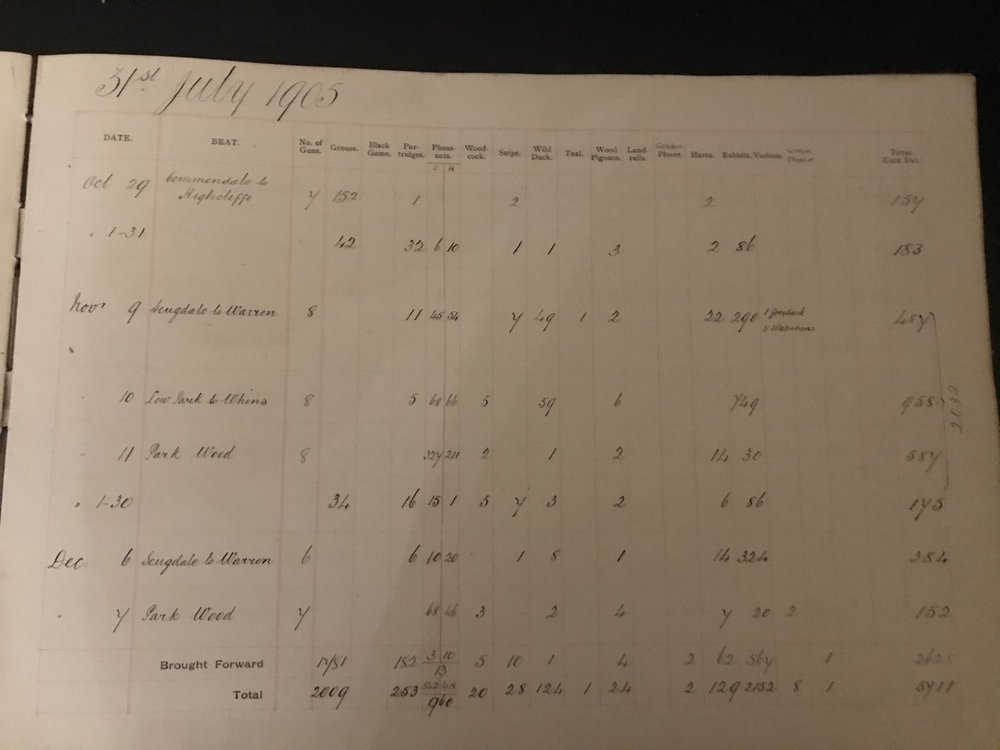 31st July 1905
DATE. BEAT. No. of Guns. Grouse. Black Game. Par-tridges. Pheas-ants. Wood-cock. Snipe. Wild Duck. Teal. Wood Pigeons. Land-rails. Golden Plover. Hares. Rabbits. Various. Green Plover Total Each Day.
C H
Oct 29 Commondale to
Highcliffe 7 152 1 2 2 157
" 1-31 42 32 6 10 1 1 3 2 86 183
Nov 9 Scugdale to Warren 8 11 45 54 7 49 1 2 22 290 1 487
5 Waterhens
10 Low Park to Whins 8 5 68 66 5 59 6 749 958
2032
11 Park Wood 8 327 211 2 1 2 14 30 587
" 1-30 34 16 15 1 5 7 3 2 6 86 175
Dec 6 Scugdale to Warren 6 6 10 20 1 8 1 14 324 384
" 7 Park Wood 7 68 46 3 2 4 7 20 2 152
Brought Forward 1781 182 3 10 5 10 1 4 2 62 567 1 2628
13
Total 2009 253 20 28 124 1 24 2 129 2152 8 1
960